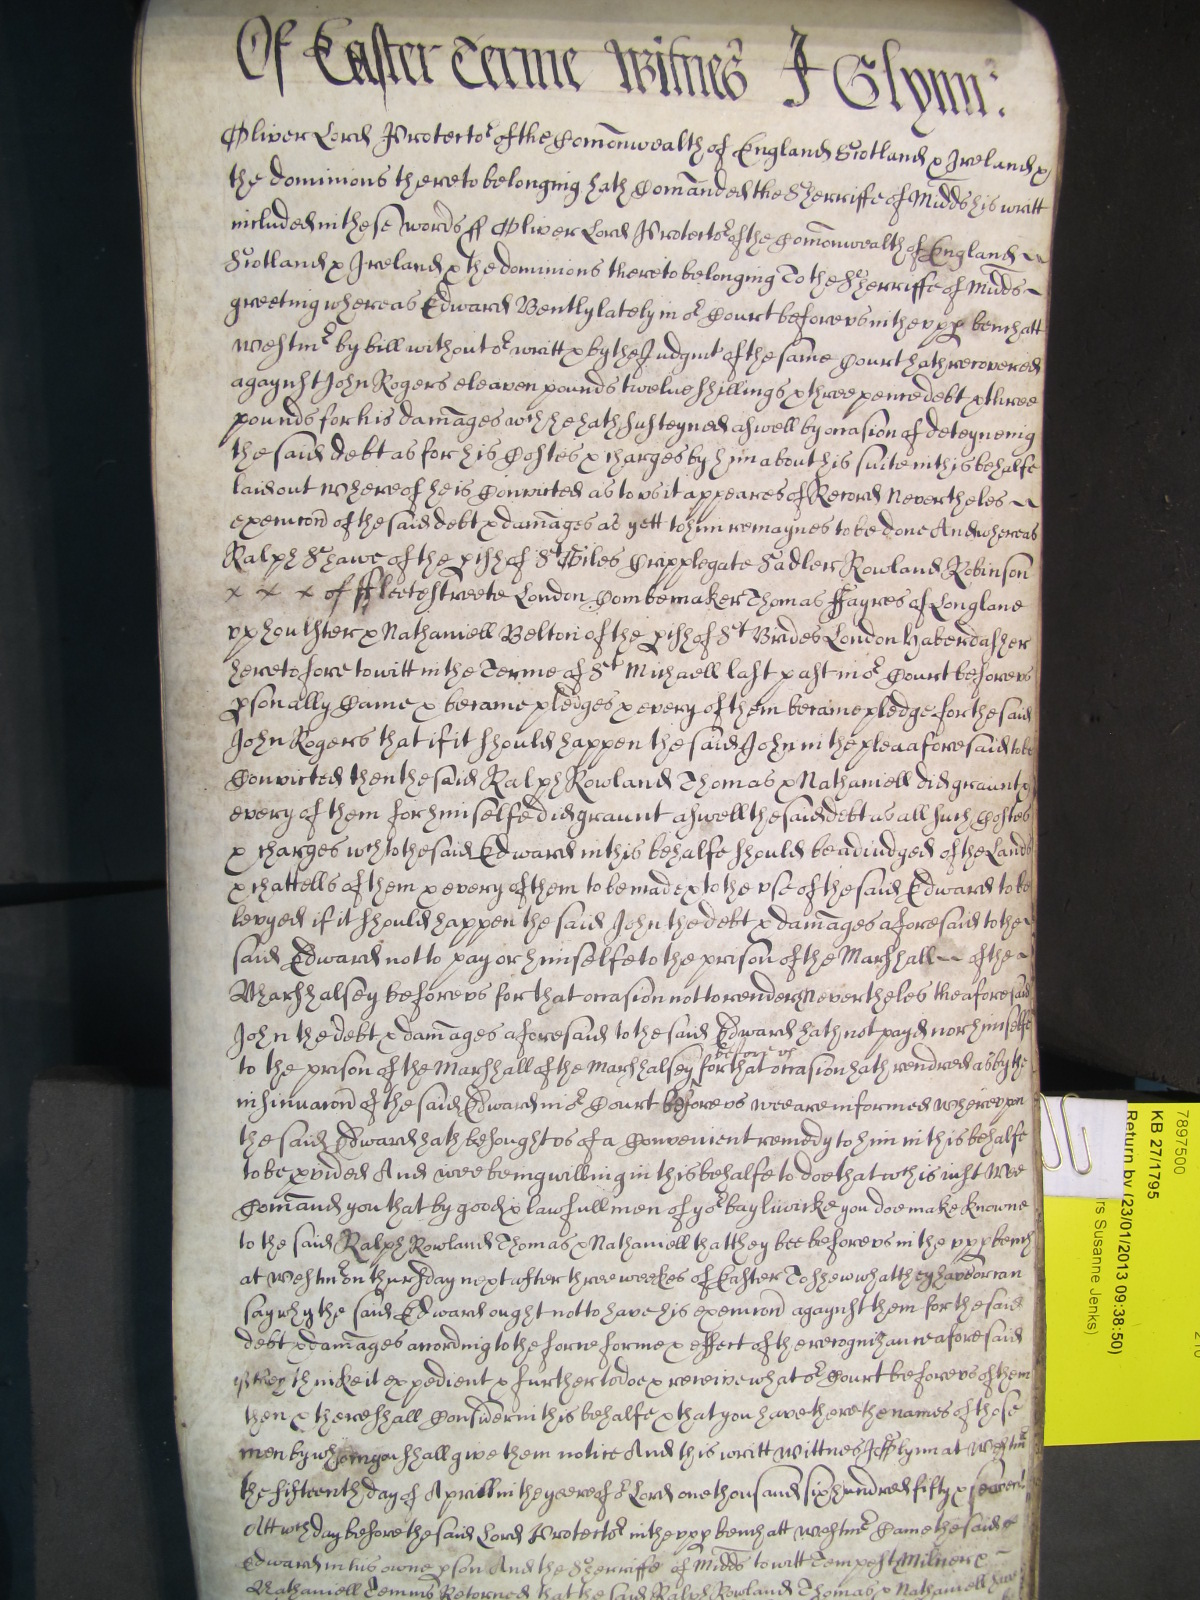 Of Easter Terme Witnes J Glynn:
Oliver Lord Protector of the Comonwealth of England Scotland & Ireland &
the dominions thereto belonging hath Comanded the Sherriffe of Midds his writt
included in these words ss Oliver Lord Protector of the Comonwealth of England
Scotland & Ireland & the dominions thereto belonging To the Sherriffe of Midds
greeting whereas Edward Bently lately in or Court before us in the upp bench att
Westmr by bill without or writt & by the Judgmt of the same Court hath recovered
agaynst John Rogers eleaven pounds twelve shillings & three pence debt & three
pounds for his damages wch he hath susteyned aswell by occasion of deteyneing
the said debt as for his Costes & charges by him about his suite in this behalfe
laid out whereof he is Convicted as to us it appeares of Record Nevertheles
execucond of the said debt & damages as yett to him remaynes to be done And whereas
Ralph Shawe of the pish of St Giles Cripplegate Sadler Rowland Robinson
x x x of ffleetestreete London Combemaker Thomas ffayres of Longlane
upholster & Nathaniell Belton of the pish of St Brides London Haberdasher
heretofore to witt in the Terme of St Michaell last past in or Court before us
psonally Came & became pledges & every of them became pledge for the said
John Rogers that if it should happen the said John in the plea aforesaid to be
Convicted then the said Ralph Rowland Thomas & Nathaniell did graunt &
every of them for himselfe did graunt aswell the said debt as all such Costes
& charges wch to the said Edward in this behalfe should be adiudged of the Lands
& chattells of them & every of them to be made & to the use of the said Edward to be
levyed if it should happen the said John the debt & damages aforesaid to the
said Edward not to pay or himselfe to the prison of the Marshall of the
Marshalsey before us for that occasion not to render Nevertheles the aforesaid
John the debt & damages aforesaid to the said Edward hath not payd nor himselfe
to the prison of the Marshall of the Marshalsey before us for that occasion hath rendred as by the
insinuacond of the said Edward in or Court before us wee are informed whereupon
the said Edward hath besought us of a Convenient remedy to him in this behalfe
to be pvided And wee being willing in this behalfe to doe that wch is iust Wee
Comand you that by good & lawfull men of yor bayliwicke you doe make knowne
to the said Ralph Rowland Thomas & Nathaniell that they bee before us in the upp bench
at Westmr on thursday next after three weekes of Easter To shew what they have or can
say why the said Edward ought not to have his execucond agaynst them for the said
debt & damages according to the force forme & effect of the recognizance aforesaid
if they thinke it expedient & further to doe & receive what or Court before us of them
then & there shall Consider in this behalfe & that you have there the names of those
men by whom you shall give them notice And this writt Wittnes J Glynn at Westmr
the fifteenth day of Aprill in the yeere of or Lord one thousand six hundred fifty & seaven
Att wch day before the said Lord Protector in the upp bench att Westmr Came the said
Edward in his owne pson And the Sherriffe of Midds to witt Tempest Milner &
Nathaniell Temms Retorned that the said Ralph Rowland Thomas & Nathaniell have
7897500
KB 27/1795
Return by (23/01/2013 09:38:50)
rs Susanne Jenks)